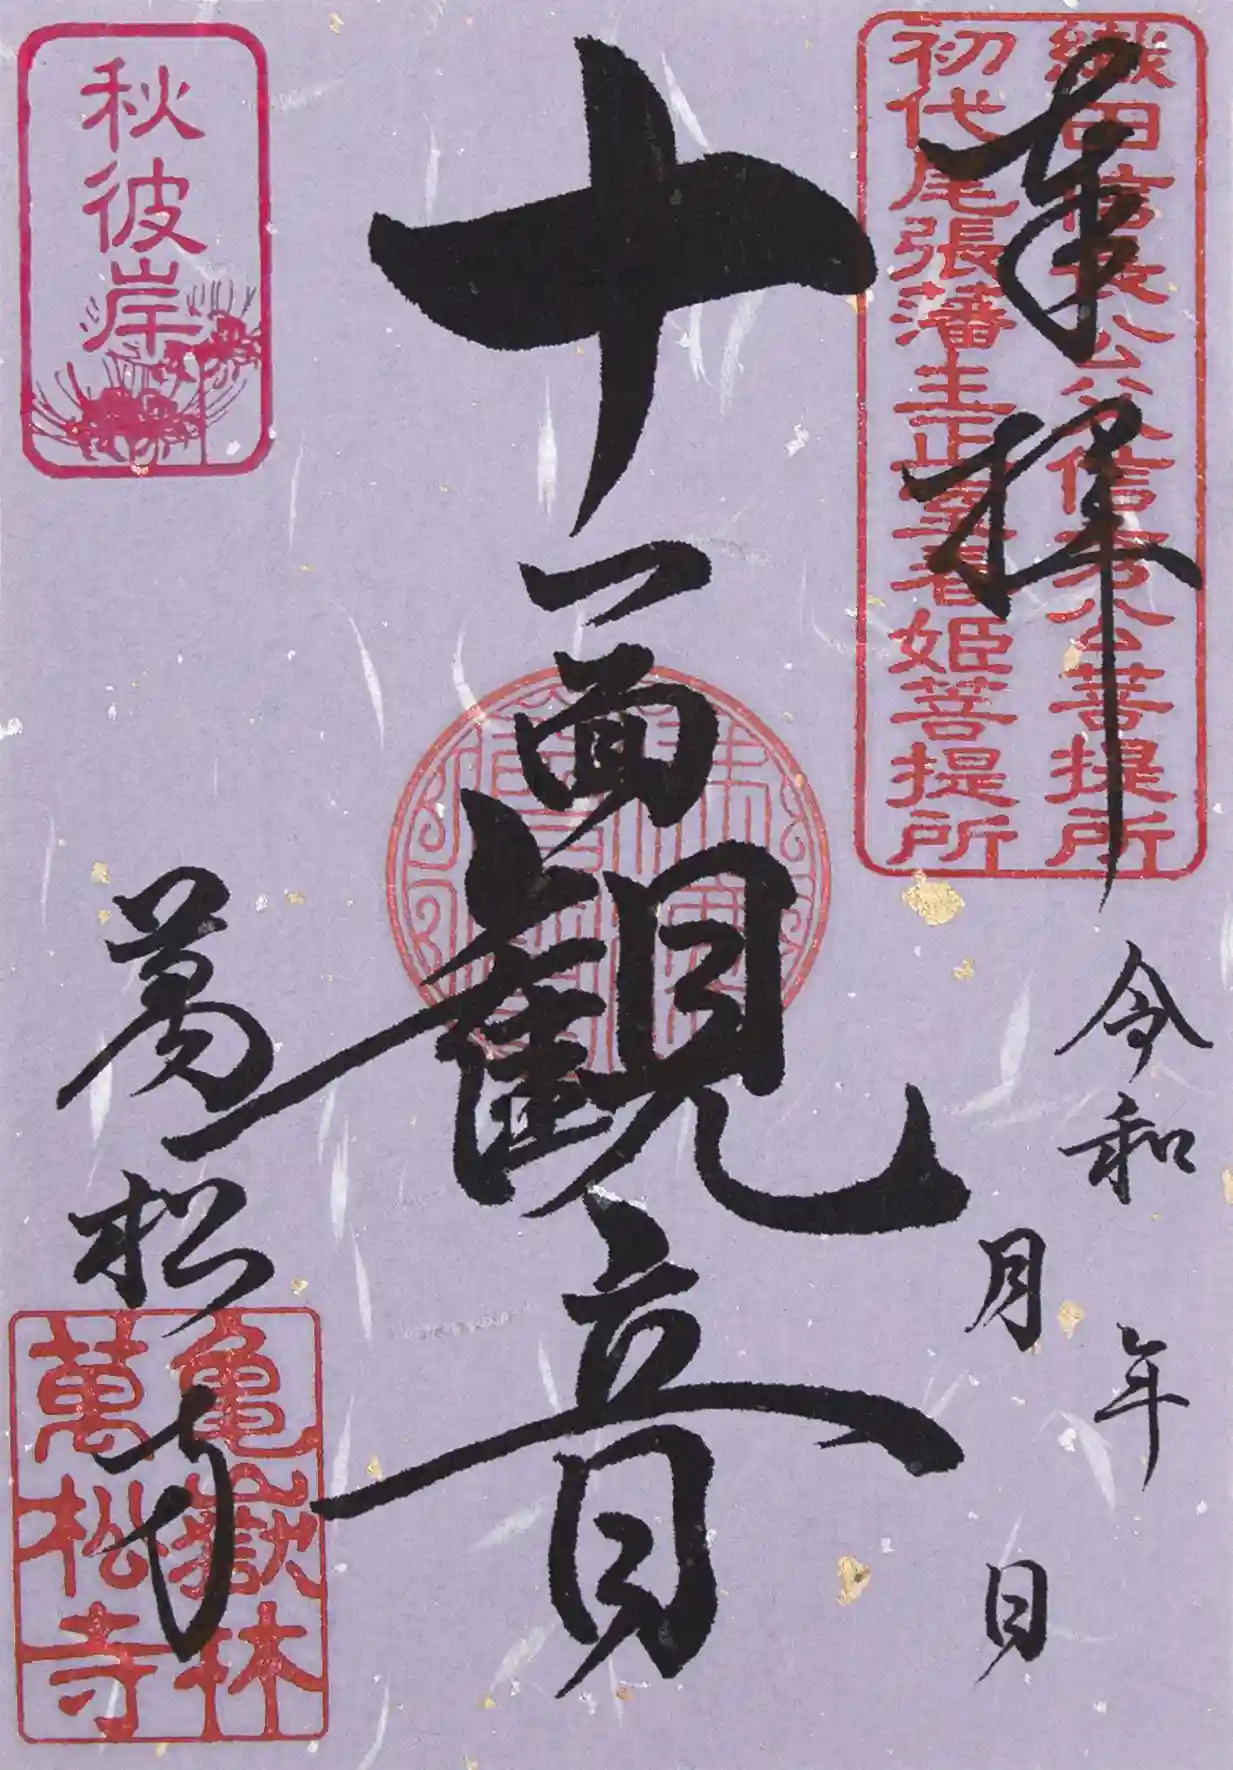 奉拝
織田信長公父信秀公菩提所
初代尾張藩主正室春姫菩提所
令和 年
月 日
十一面観音
秋彼岸
萬松寺
亀嶽林
萬松寺